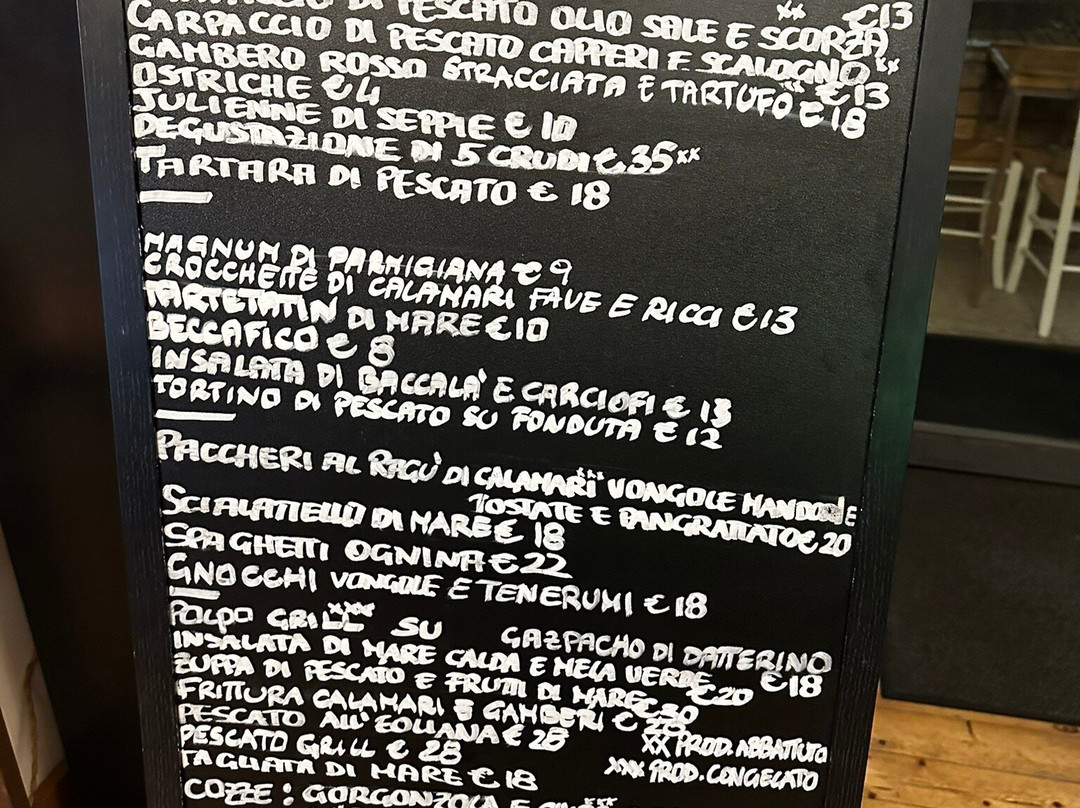 DI PESCATO OLIO SALE E SCORZA xx €13
CARPACCIO DI PESCATO CAPPERI E SCALOGNO xx €13
GAMBERO ROSSO STRACCIATA E TARTUFO €18
OSTRICHE €4
JULIENNE DI SEPPIE € 10
DEGUSTAZIONE DI 5 CRUDI €35 xx
TARTARA DI PESCATO € 18
MAGNUM DI PARMIGIANA € 9
CROCCHETTE DI CALAMARI FAVE E RICCI €13
TARTETATIN DI MARE €10
BECCAFICO € 8
INSALATA DI BACCALA' E CARCIOFI € 13
TORTINO DI PESCATO SU FONDUTA € 12
PACCHERI AL RAGÙ DI CALAMARI xxx VONGOLE MANDORLE
TOSTATE E PANGRATTATO € 20
SCIALATIELLO DI MARE € 18
SPAGHETTI OGNINA €22
GNOCCHI VONGOLE E TENERUMI € 18
POLPO GRILL xxx SU GAZPACHO DI DATTERINO €18
INSALATA DI MARE CALDA E MELA VERDE €20
ZUPPA DI PESCATO E FRUTTI DI MARE €30
FRITTURA CALAMARI E GAMBERI €
PESCATO ALL'EOLIANA € 28
PESCATO GRILL € 28
TAGLIATA DI MARE € 18
XX PROD. ABBATTUTO
XXX PROD. CONGELATO
COZZE: GORGONZOLA E